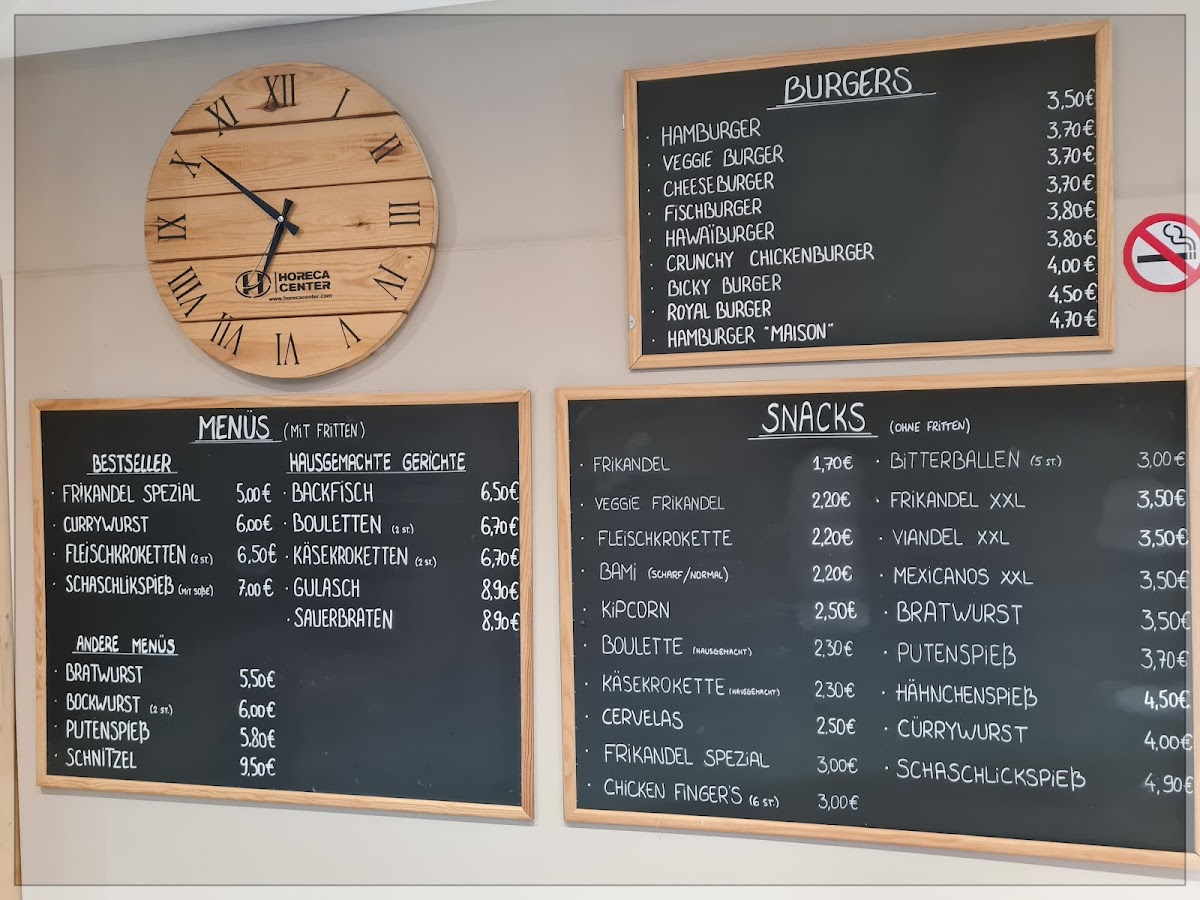 XII
I
II
III
IV
V
VI
VII
VIII
IX
X
XI
H HORECA
CENTER
www.horecacenter.com
BURGERS
· HAMBURGER 3,50€
· VEGGIE BURGER 3,70€
· CHEESEBURGER 3,70€
· FISCHBURGER 3,70€
· HAWAÏBURGER 3,80€
· CRUNCHY CHICKENBURGER 3,80€
· BICKY BURGER 4,00€
· ROYAL BURGER 4,50€
· HAMBURGER "MAISON" 4,70€
MENÜS (MIT FRITTEN)
BESTSELLER
· FRIKANDEL SPEZIAL 5,00€
· CURRYWURST 6,00€
· FLEISCHKROKETTEN (2 ST.) 6,50€
· SCHASCHLIKSPIEß (MIT SOßE) 7,00€
ANDERE MENÜS
· BRATWURST 5,50€
· BOCKWURST (2 ST.) 6,00€
· PUTENSPIEß 5,80€
· SCHNITZEL 9,50€
HAUSGEMACHTE GERICHTE
· BACKFISCH 6,50€
· BOULETTEN (2 ST.) 6,70€
· KÄSEKROKETTEN (2 ST.) 6,70€
· GULASCH 8,90€
· SAUERBRATEN 8,90€
SNACKS (OHNE FRITTEN)
· FRIKANDEL 1,70€
· VEGGIE FRIKANDEL 2,20€
· FLEISCHKROKETTE 2,20€
· BAMI (SCHARF/NORMAL) 2,20€
· KIPCORN 2,50€
· BOULETTE (HAUSGEMACHT) 2,30€
· KÄSEKROKETTE (HAUSGEMACHT) 2,30€
· CERVELAS 2,50€
· FRIKANDEL SPEZIAL 3,00€
· CHICKEN FINGER'S (6 ST.) 3,00€
· BITTERBALLEN (5 ST.) 3,00€
· FRIKANDEL XXL 3,50€
· VIANDEL XXL 3,50€
· MEXICANOS XXL 3,50€
· BRATWURST 3,50€
· PUTENSPIEß 3,70€
· HÄHNCHENSPIEß 4,50€
· CÜRRYWURST 4,00€
· SCHASCHLICKSPIEß 4,90€